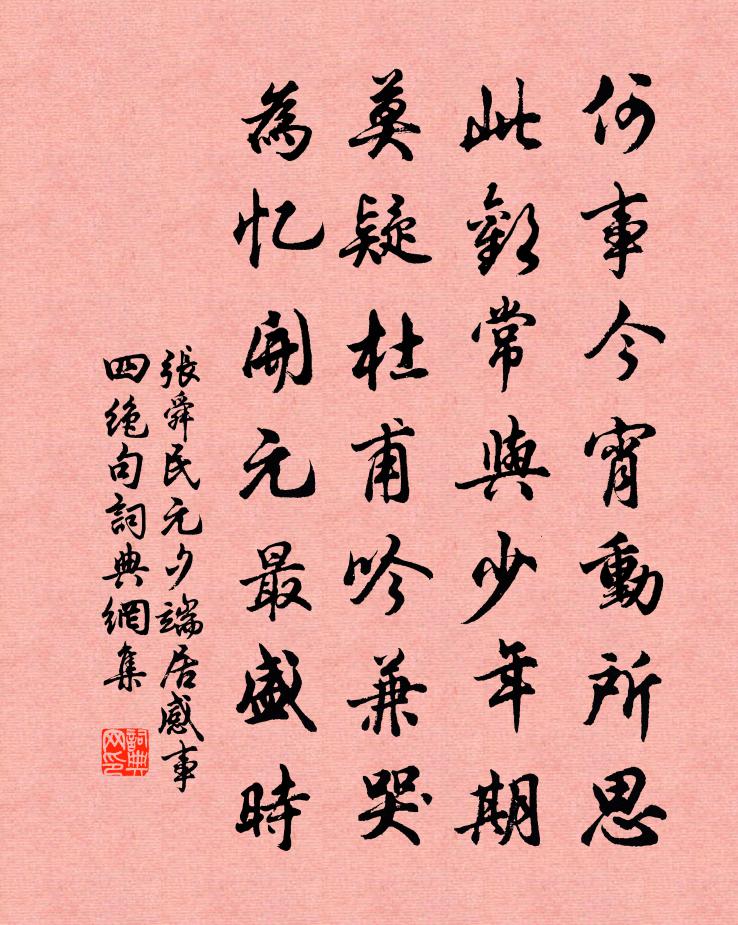 何事今宵動所思
此歡常與少年期
莫疑杜甫吟兼哭
為忆開元最盛時
張舜民元夕端居感事
四絶句詞典網集
詞典网印